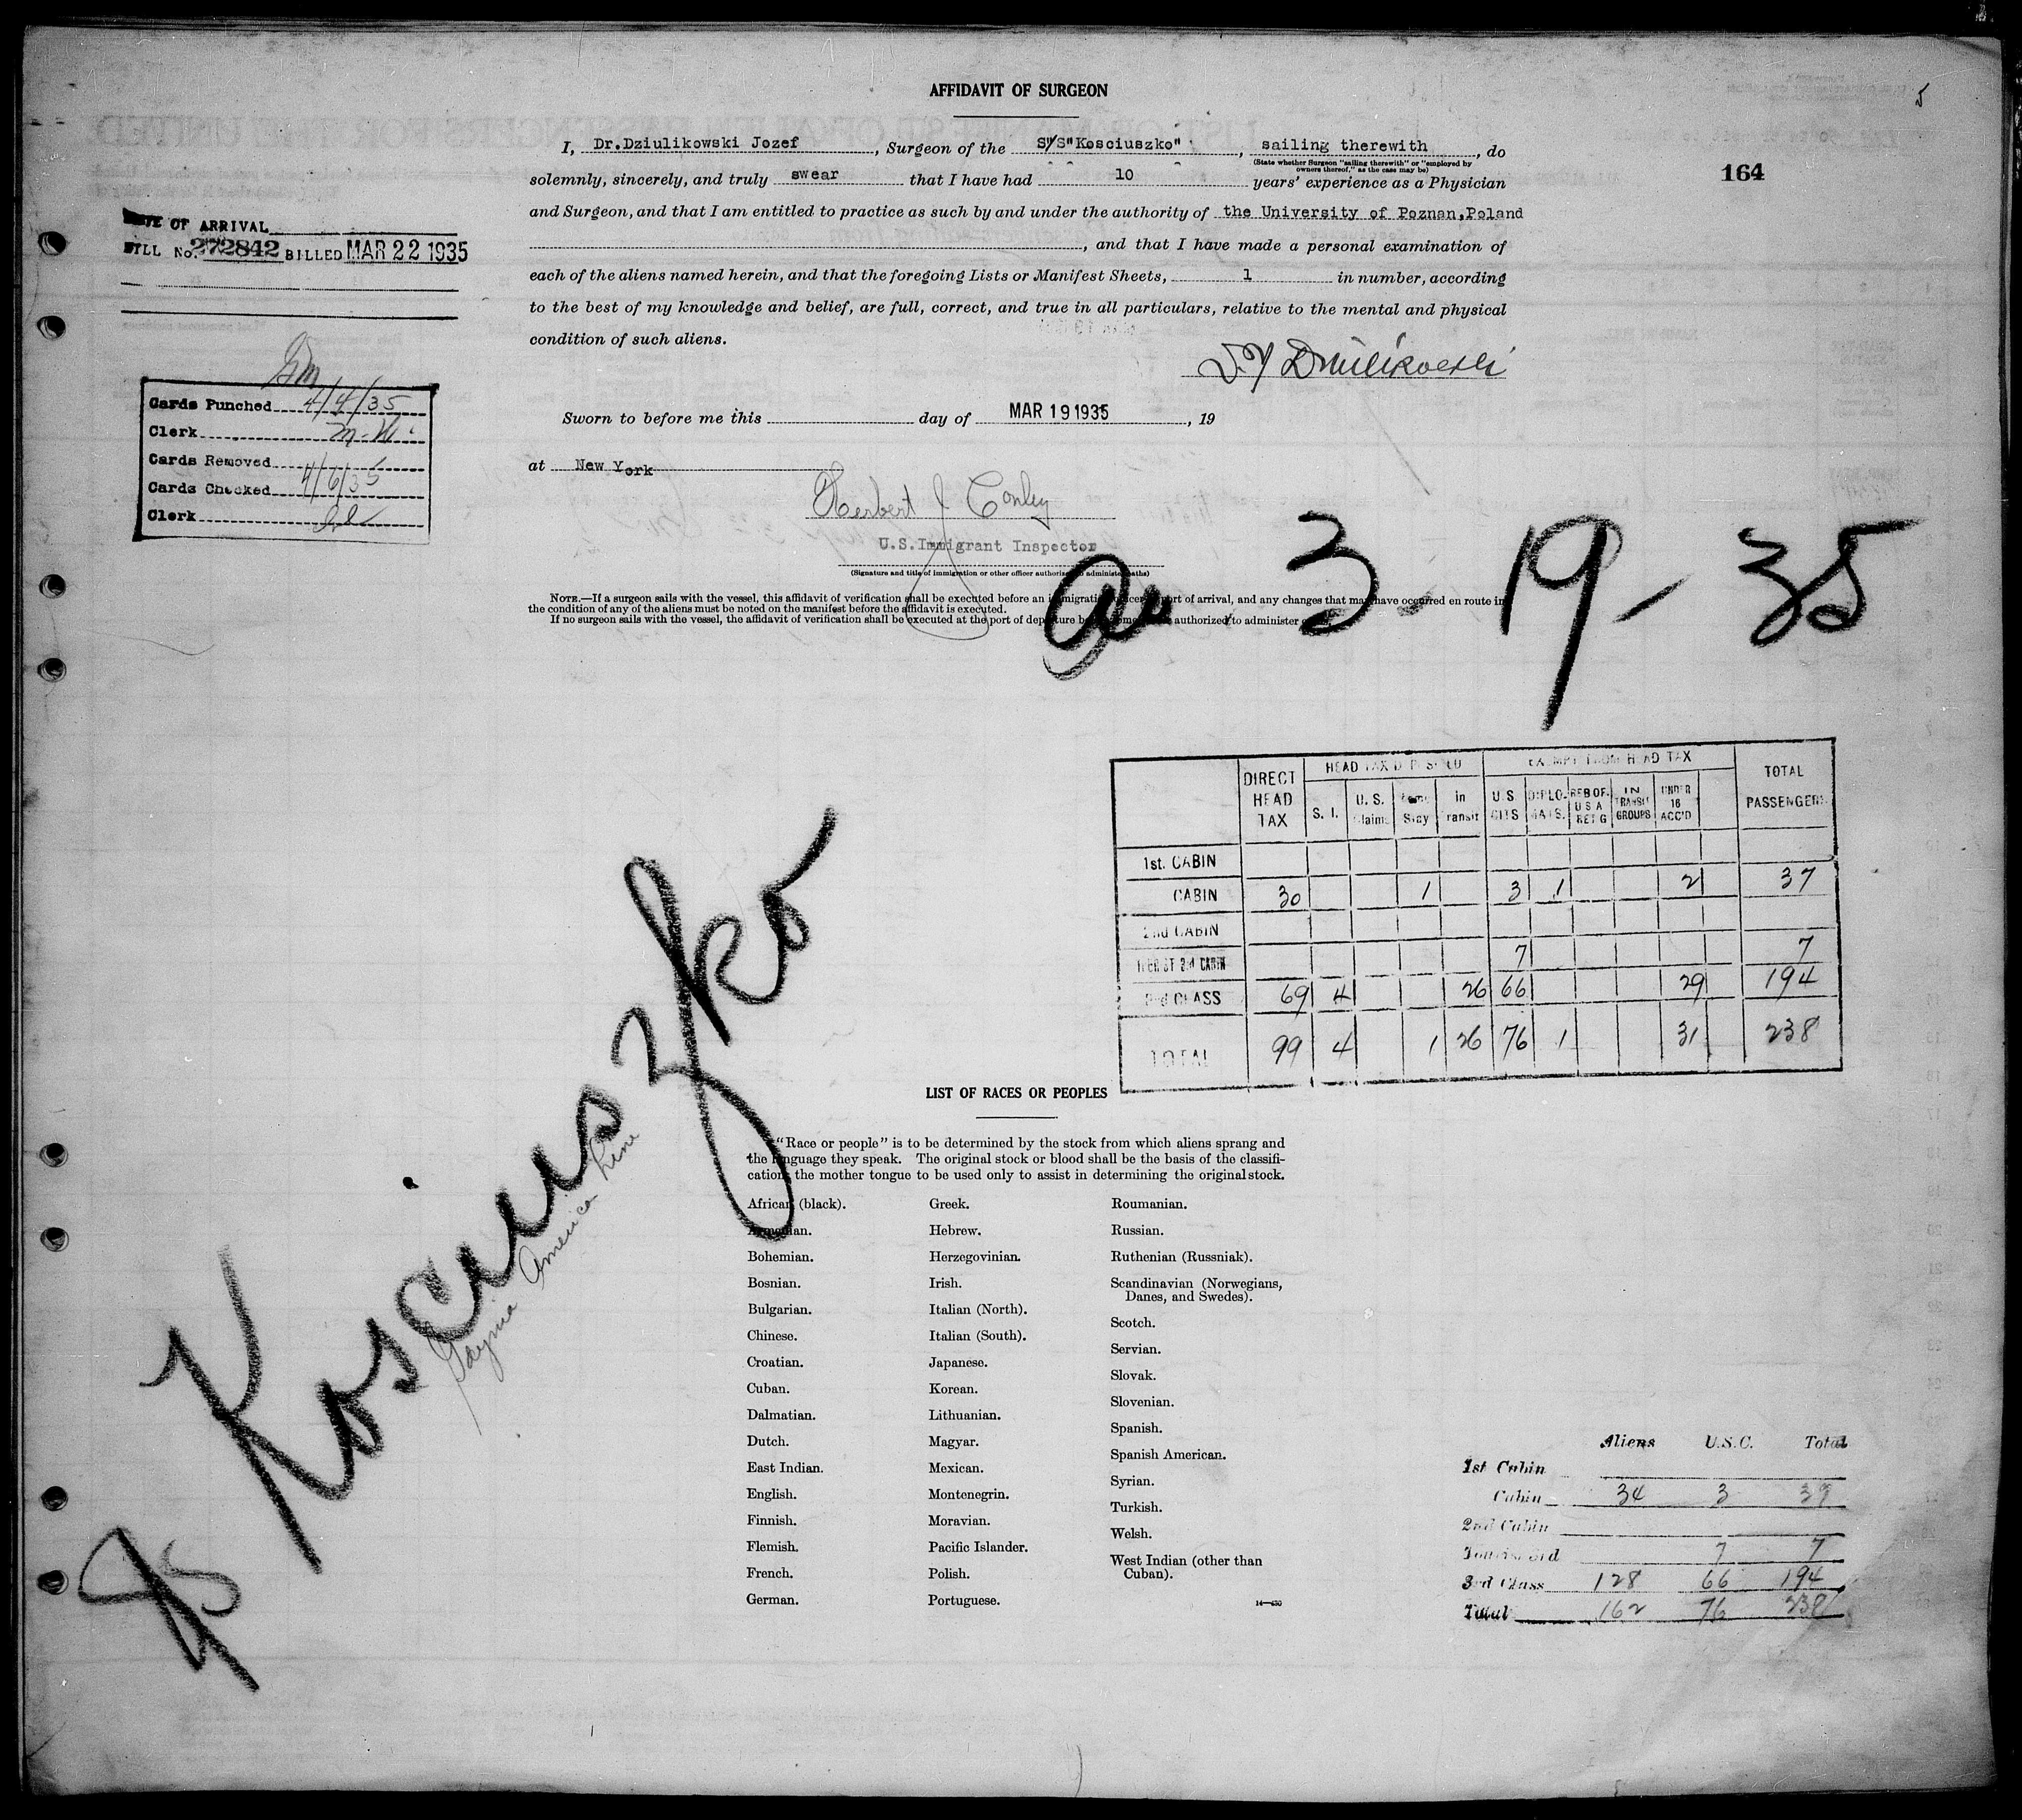 AFFIDAVIT OF SURGEON
5
I, Dr.Dziulikowski Jozef, Surgeon of the S/S"Kosciuszko", sailing therewith, do
(State whether Surgeon "sailing therewith" or "employed by owners thereof," as the case may be)
164
solemnly, sincerely, and truly swear that I have had 10 years' experience as a Physician
and Surgeon, and that I am entitled to practice as such by and under the authority of the University of Poznan,Poland
, and that I have made a personal examination of
each of the aliens named herein, and that the foregoing Lists or Manifest Sheets, 1 in number, according
to the best of my knowledge and belief, are full, correct, and true in all particulars, relative to the mental and physical
condition of such aliens.
DATE OF ARRIVAL
BILL No. 272842 BILLED MAR 22 1935
Cards Punched 4/4/35
Clerk
Cards Removed
Cards Checked 4/6/35
Clerk
Sworn to before me this day of MAR 19 1935, 19
at New York
Herbert J Conley
U.S.Immigrant Inspector
(Signature and title of immigration or other officer authorized to administer oaths)
3-19-35
NOTE.—If a surgeon sails with the vessel, this affidavit of verification shall be executed before an immigration officer port of arrival, and any changes that may have occurred en route in
the condition of any of the aliens must be noted on the manifest before the affidavit is executed.
If no surgeon sails with the vessel, the affidavit of verification shall be executed at the port of departure authorized to administer
DIRECT HEAD TAX
HEAD TAX DEPOSITED
EXEMPT FROM HEAD TAX
TOTAL PASSENGERS
S. I.
U. S. Claims
Temp. Stay
in Transit
U S CITS
DIPLOMATS.
IN TRANSIT GROUPS
UNDER 16 ACC'D
1st. CABIN
CABIN 30 1 3 1 2 37
2nd CABIN
TOURIST 3rd CABIN 7 7
3rd CLASS 69 4 26 66 29 194
TOTAL 99 4 1 26 76 1 31 238
SS Kosciuszko
Gdynia America Line
LIST OF RACES OR PEOPLES
"Race or people" is to be determined by the stock from which aliens sprang and
the language they speak. The original stock or blood shall be the basis of the classifi-
cation, the mother tongue to be used only to assist in determining the original stock.
African (black).
Armenian.
Bohemian.
Bosnian.
Bulgarian.
Chinese.
Croatian.
Cuban.
Dalmatian.
Dutch.
East Indian.
English.
Finnish.
Flemish.
French.
German.
Greek.
Hebrew.
Herzegovinian.
Irish.
Italian (North).
Italian (South).
Japanese.
Korean.
Lithuanian.
Magyar.
Mexican.
Montenegrin.
Moravian.
Pacific Islander.
Polish.
Portuguese.
Roumanian.
Russian.
Ruthenian (Russniak).
Scandinavian (Norwegians,
Danes, and Swedes).
Scotch.
Servian.
Slovak.
Slovenian.
Spanish.
Spanish American.
Syrian.
Turkish.
Welsh.
West Indian (other than
Cuban).
14—430
Aliens U.S.C. Total
1st Cabin
Cabin 34 3 37
2nd Cabin
Tourist 3rd 7 7
3rd Class 128 66 194
Total 162 76 238